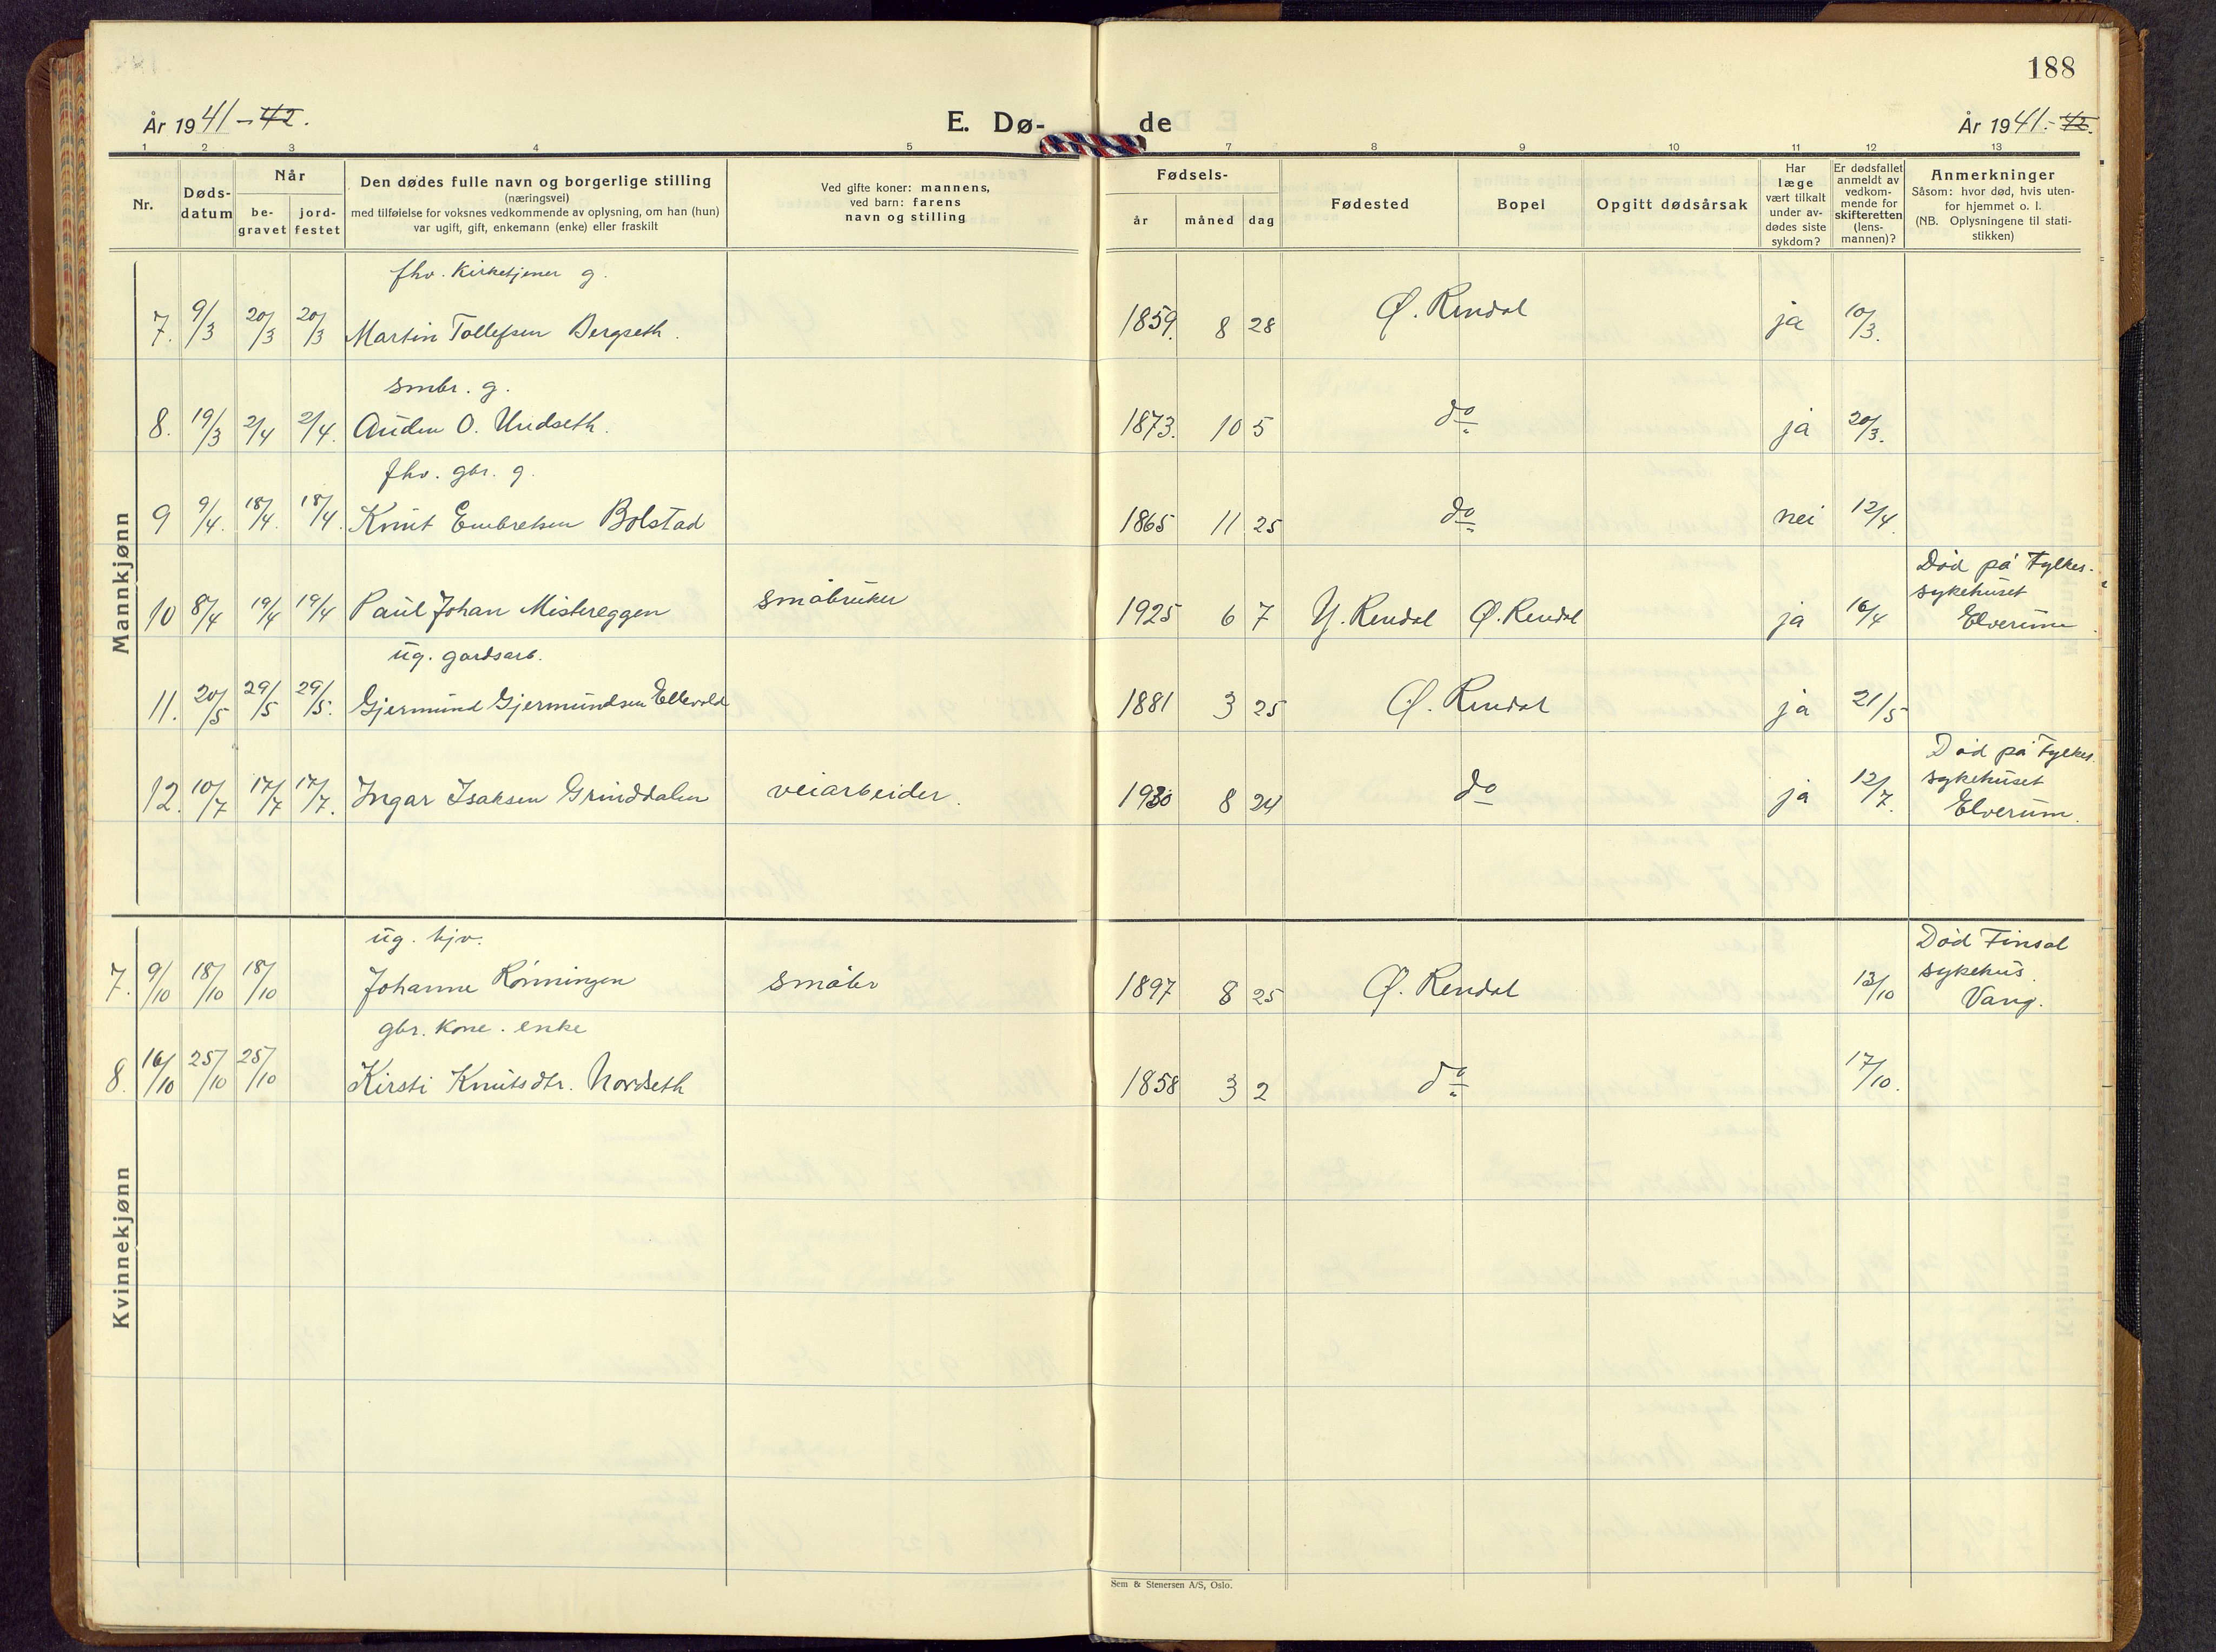 188
År 1941-42.
E. Dø-
de
År 1941.-42.
1 2 3 4 5 7 8 9 10 11 12 13
Nr.
Døds-
datum
Når
be-
gravet
jord-
festet
Den dødes fulle navn og borgerlige stilling
(næringsvei)
med tilføielse for voksnes vedkommende av oplysning, om han (hun)
var ugift, gift, enkemann (enke) eller fraskilt
Ved gifte koner: mannens,
ved barn: farens
navn og stilling
Fødsels-
år måned dag
Fødested
Bopel
Opgitt dødsårsak
Har
læge
vært tilkalt
under av-
dødes siste
sykdom?
Er dødsfallet
anmeldt av
vedkom-
mende for
skifteretten
(lens-
mannen)?
Anmerkninger
Såsom: hvor død, hvis uten-
for hjemmet o. l.
(NB. Oplysningene til stati-
stikken)
Mannkjønn
fhv. Kirketjener g.
7. 9/3 20/3 20/3 Martin Tollefsen Bergseth. 1859. 8 28 Ø. Rendal ja 10/3.
smbr. g.
8. 19/3 2/4 2/4. Auden O. Undseth. 1873. 10 5 do ja 20/3.
fhv. gbr. g.
9 9/4. 18/4. 18/4. Knut Embretsen Bolstad 1865 11 25 do nei 12/4.
Død på Fylkes-
sykehuset
10 8/4 19/4 19/4 Paul Johan Mistereggen småbruker 1925 6 7 Y. Rendal Ø. Rendal ja 16/4 Elverum
ug. gardsarb.
11. 20/5 29/5 29/5. Gjermund Gjermundsen Ellevold 1881 3 25 Ø. Rendal ja 21/5
Død på Fylkes.
sykehuset
12. 10/7 17/7 17/7. Ingar Isaksen Grinddalen veiarbeider. 1930 8 24 do ja 12/7. Elverum.
Kvinnekjønn
ug. hjv. Død Finsal
sykehus.
7. 9/10 18/10 18/10 Johanne Rønningen småbr 1897 8 25 Ø. Rendal 13/10 Vang.
gbr. kone. enke
8. 16/10 25/10 25/10 Kirsti Knutsdtr. Nordseth 1858 3 2 do 17/10.
Sem & Stenersen A/S, Oslo.